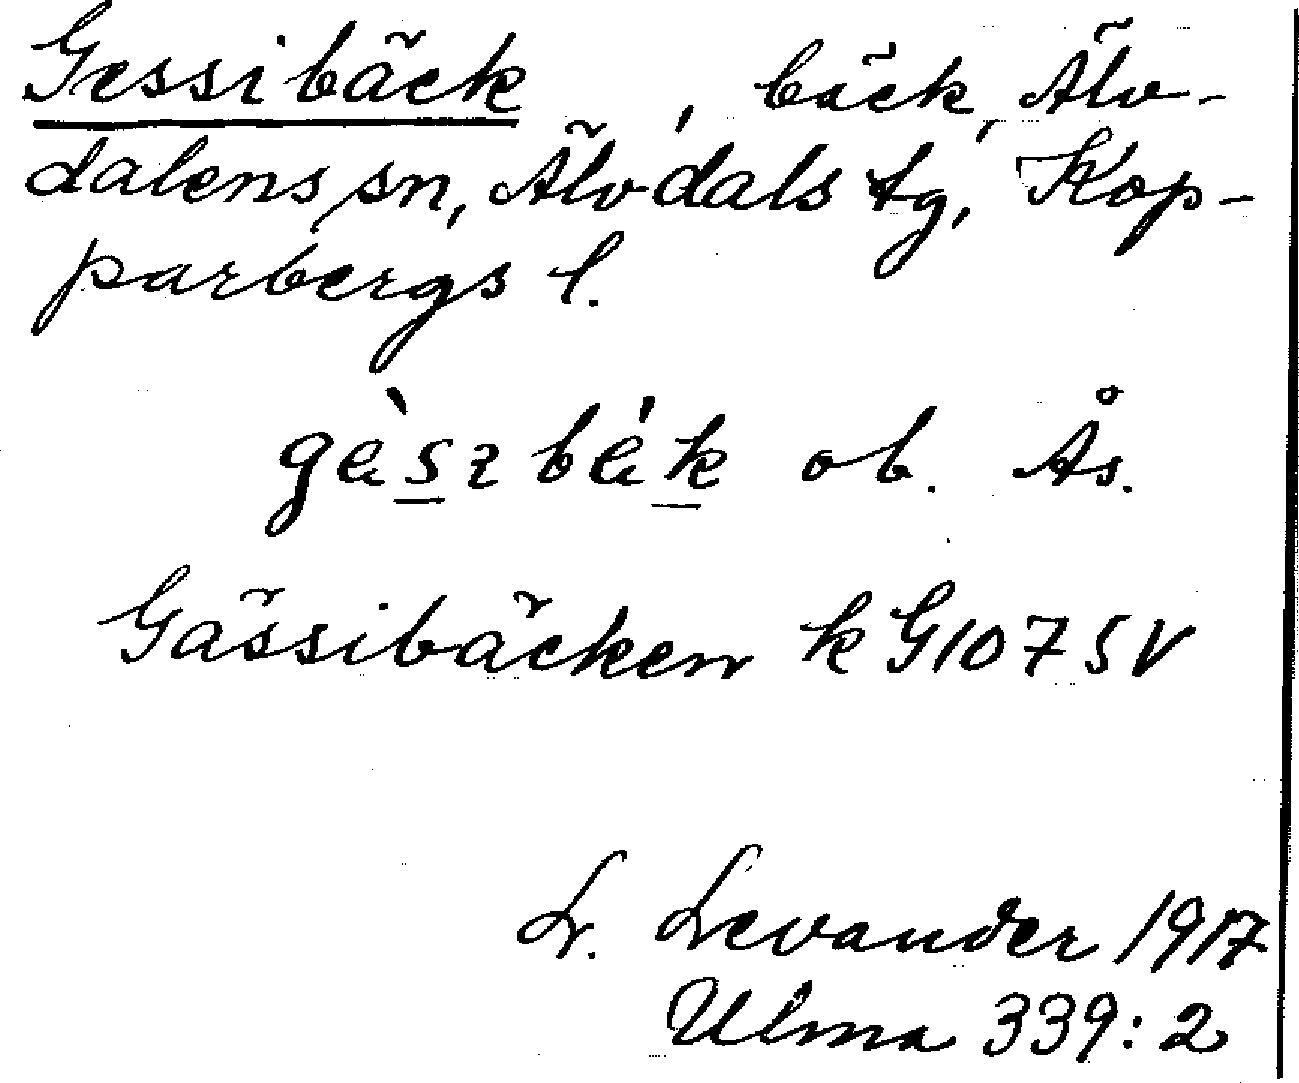 Gessibäck, bäck, Älv-
dalens sn, Älvdals tg, Kop-
parbergs l.
gèszbék ob. Ås.
Gässibäcken k G107 SV
L. Levander 1917
Ulma 339:2